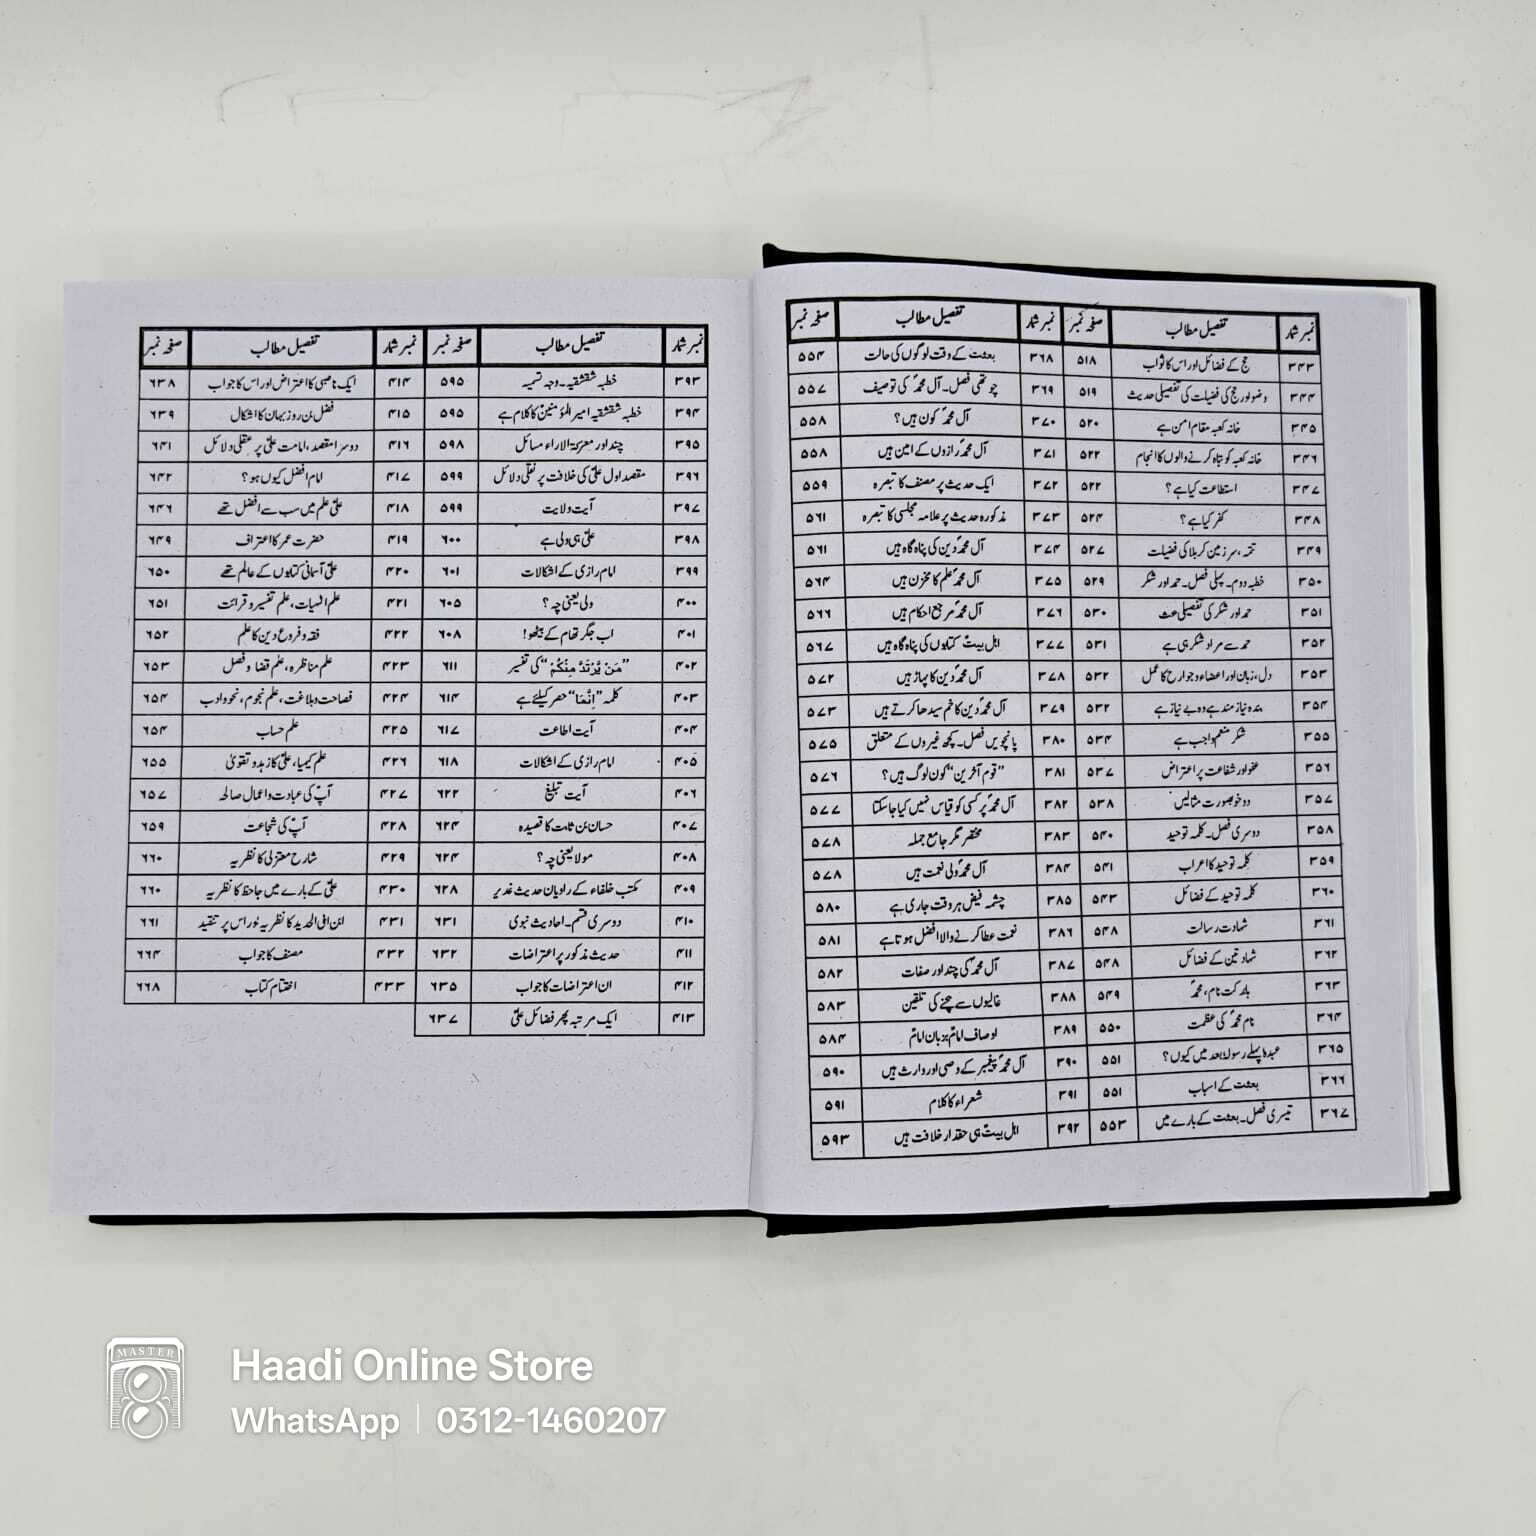 نمبر شمار تفصیل مطالب صفحہ نمبر
۳۴۳ حج کے فضائل اور اس کا ثواب ۵۱۸
۳۴۴ وضو اور حج کی فضیلت کی تفصیلی حدیث ۵۱۹
۳۴۵ خانہ کعبہ مقام امن ہے ۵۲۰
۳۴۶ خانہ کعبہ کو تباہ کرنے والوں کا انجام ۵۲۲
۳۴۷ استطاعت کیا ہے؟ ۵۲۲
۳۴۸ کفر کیا ہے؟ ۵۲۴
۳۴۹ تتمہ، سرزمین کربلا کی فضیلت ۵۲۷
۳۵۰ خطبہ دوم۔ پہلی فصل۔ حمد اور شکر ۵۲۹
۳۵۱ حمد اور شکر کی تفصیلی بحث ۵۳۰
۳۵۲ حمد سے مراد شکر ہی ہے ۵۳۱
۳۵۳ دل، زبان اور اعضاء و جوارح کا عمل ۵۳۲
۳۵۴ بندہ نیاز مند ہے وہ بے نیاز ہے ۵۳۲
۳۵۵ شکر منعم واجب ہے ۵۳۴
۳۵۶ عفو اور شفاعت پر اعتراض ۵۳۷
۳۵۷ دو خوبصورت مثالیں ۵۳۸
۳۵۸ دوسری فصل۔ کلمہ توحید ۵۴۰
۳۵۹ کلمہ توحید کا اعراب ۵۴۱
۳۶۰ کلمہ توحید کے فضائل ۵۴۳
۳۶۱ شہادت رسالت ۵۴۸
۳۶۲ شہادتین کے فضائل ۵۴۸
۳۶۳ بابرکت نام، محمدؐ ۵۴۹
۳۶۴ نام محمدؐ کی عظمت ۵۵۰
۳۶۵ عبدہ پہلے رسولہ بعد میں کیوں؟ ۵۵۱
۳۶۶ بعثت کے اسباب ۵۵۱
۳۶۷ تیسری فصل۔ بعثت کے بارے میں ۵۵۳
نمبر شمار تفصیل مطالب صفحہ نمبر
۳۶۸ بعثت کے وقت لوگوں کی حالت ۵۵۴
۳۶۹ چوتھی فصل۔ آل محمدؐ کی توصیف ۵۵۷
۳۷۰ آل محمدؐ کون ہیں؟ ۵۵۸
۳۷۱ آل محمدؐ رازوں کے امین ہیں ۵۵۸
۳۷۲ ایک حدیث پر مصنف کا تبصرہ ۵۵۹
۳۷۳ مذکورہ حدیث پر علامہ مجلسی کا تبصرہ ۵۶۱
۳۷۴ آل محمدؐ دین کی پناہ گاہ ہیں ۵۶۱
۳۷۵ آل محمدؐ علم کا مخزن ہیں ۵۶۴
۳۷۶ آل محمدؐ مرجع احکام ہیں ۵۶۶
۳۷۷ اہل بیتؑ کتابوں کی پناہ گاہ ہیں ۵۶۷
۳۷۸ آل محمدؐ دین کا پہاڑ ہیں ۵۷۲
۳۷۹ آل محمدؐ دین کا خم سیدھا کرتے ہیں ۵۷۳
۳۸۰ پانچویں فصل۔ کچھ غیروں کے متعلق ۵۷۵
۳۸۱ "قوم آخرین" کون لوگ ہیں؟ ۵۷۶
۳۸۲ آل محمدؐ پر کسی کو قیاس نہیں کیا جا سکتا ۵۷۷
۳۸۳ مختصر مگر جامع جملہ ۵۷۸
۳۸۴ آل محمدؐ ولی نعمت ہیں ۵۷۸
۳۸۵ چشمہ فیض ہر وقت جاری ہے ۵۸۰
۳۸۶ نعمت عطا کرنے والا افضل ہوتا ہے ۵۸۱
۳۸۷ آل محمدؐ کی چند اور صفات ۵۸۲
۳۸۸ غالیوں سے بچنے کی تلقین ۵۸۳
۳۸۹ اوصاف امامؑ بزبان امامؑ ۵۸۴
۳۹۰ آل محمدؐ پیغمبرؐ کے وصی اور وارث ہیں ۵۹۰
۳۹۱ شعراء کا کلام ۵۹۱
۳۹۲ اہل بیتؑ ہی حقدار خلافت ہیں ۵۹۳
نمبر شمار تفصیل مطالب صفحہ نمبر
۳۹۳ خطبہ شقشقیہ۔ وجہ تسمیہ ۵۹۵
۳۹۴ خطبہ شقشقیہ امیر المؤمنینؑ کا کلام ہے ۵۹۵
۳۹۵ چند اور معرکۃ الاراء مسائل ۵۹۸
۳۹۶ مقصد اول علیؑ کی خلافت پر نقلی دلائل ۵۹۹
۳۹۷ آیت ولایت ۵۹۹
۳۹۸ علیؑ ہی ولی ہے ۶۰۰
۳۹۹ امام رازی کے اشکالات ۶۰۱
۴۰۰ ولی یعنی چہ؟ ۶۰۵
۴۰۱ اب جگر تھام کے بیٹھو! ۶۰۸
۴۰۲ "مَنْ يَّرْتَدَّ مِنْكُمْ" کی تفسیر ۶۱۱
۴۰۳ کلمہ "اِنَّمَا" حصر کیلئے ہے ۶۱۴
۴۰۴ آیت اطاعت ۶۱۷
۴۰۵ امام رازی کے اشکالات ۶۱۸
۴۰۶ آیت تبلیغ ۶۲۲
۴۰۷ حسان بن ثابت کا قصیدہ ۶۲۴
۴۰۸ مولا یعنی چہ؟ ۶۲۴
۴۰۹ مکتب خلفاء کے راویان حدیث غدیر ۶۲۸
۴۱۰ دوسری قسم۔ احادیث نبوی ۶۳۱
۴۱۱ حدیث مذکور پر اعتراضات ۶۳۲
۴۱۲ ان اعتراضات کا جواب ۶۳۵
۴۱۳ ایک مرتبہ پھر فضائل علیؑ ۶۳۷
نمبر شمار تفصیل مطالب صفحہ نمبر
۴۱۴ ایک ناصبی کا اعتراض اور اس کا جواب ۶۳۸
۴۱۵ فضل بن روزبہان کا اشکال ۶۳۹
۴۱۶ دوسرا مقصد، امامت علیؑ پر عقلی دلائل ۶۴۱
۴۱۷ امام افضل کیوں ہو؟ ۶۴۲
۴۱۸ علیؑ علم میں سب سے افضل تھے ۶۴۶
۴۱۹ حضرت عمر کا اعتراف ۶۴۹
۴۲۰ علیؑ آسمانی کتابوں کے عالم تھے ۶۵۰
۴۲۱ علم الہیات، علم تفسیر و قرائت ۶۵۱
۴۲۲ فقہ و فروع دین کا علم ۶۵۲
۴۲۳ علم مناظرہ، علم قضا و فصل ۶۵۳
۴۲۴ فصاحت و بلاغت، علم نجوم، نحو و ادب ۶۵۴
۴۲۵ علم حساب ۶۵۴
۴۲۶ علم کیمیا، علیؑ کا زہد و تقویٰ ۶۵۵
۴۲۷ آپؑ کی عبادت و اعمال صالحہ ۶۵۷
۴۲۸ آپؑ کی شجاعت ۶۵۹
۴۲۹ شارح معتزلی کا نظریہ ۶۶۰
۴۳۰ علیؑ کے بارے میں جاحظ کا نظریہ ۶۶۰
۴۳۱ ابن ابی الحدید کا نظریہ اور اس پر تنقید ۶۶۱
۴۳۲ مصنف کا جواب ۶۶۴
۴۳۳ اختتام کتاب ۶۶۸
MASTER
Haadi Online Store
WhatsApp | 0312-1460207